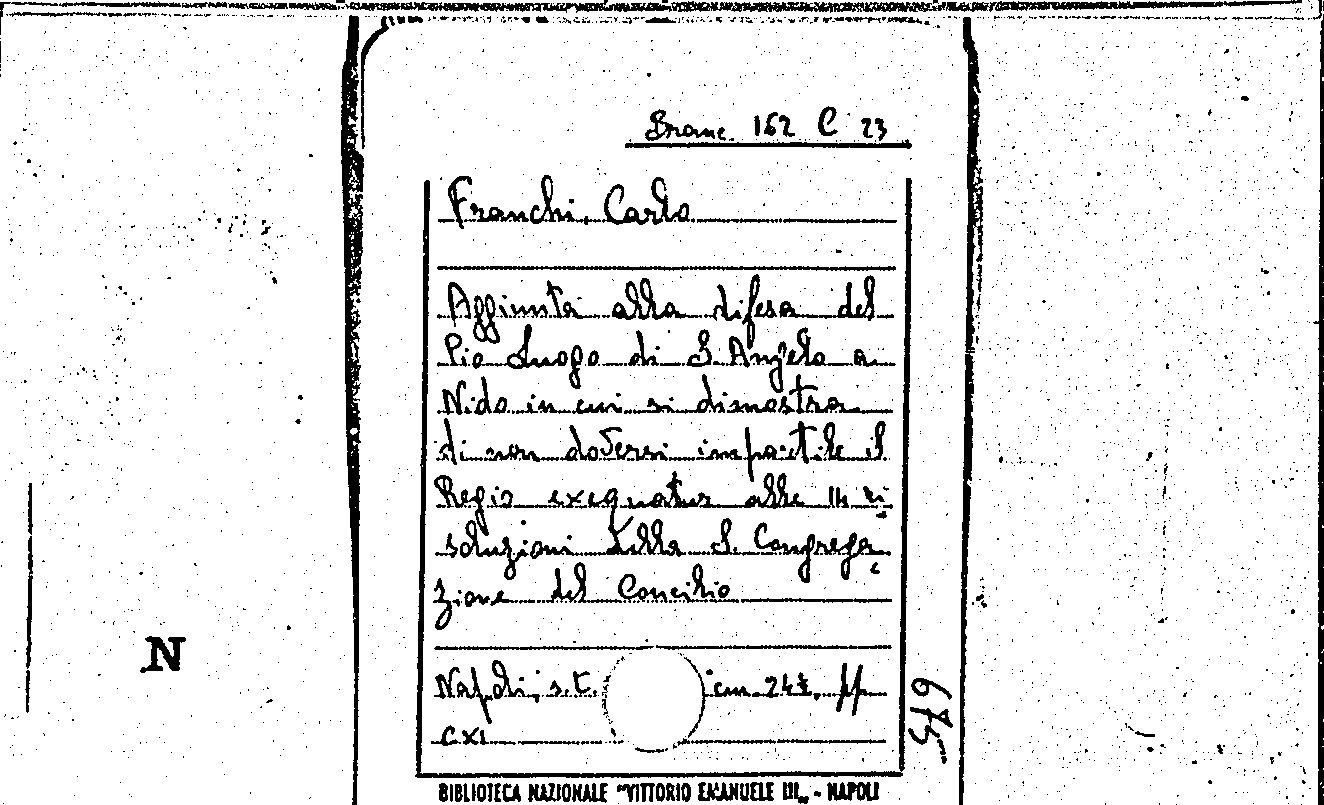 Branc. 162 C 23
Franchi, Carlo
Aggiunta alla difesa del
Pio Luogo di S. Angelo a
Nido in cui si dimostra
di non doversi impartile il
Regio exequatur alle
soluzioni della S. Congrega
zione del Concilio
Napoli, s.t. cm. 24½, pp
CXI
N
BIBLIOTECA NAZIONALE "VITTORIO EMANUELE III„ - NAPOLI